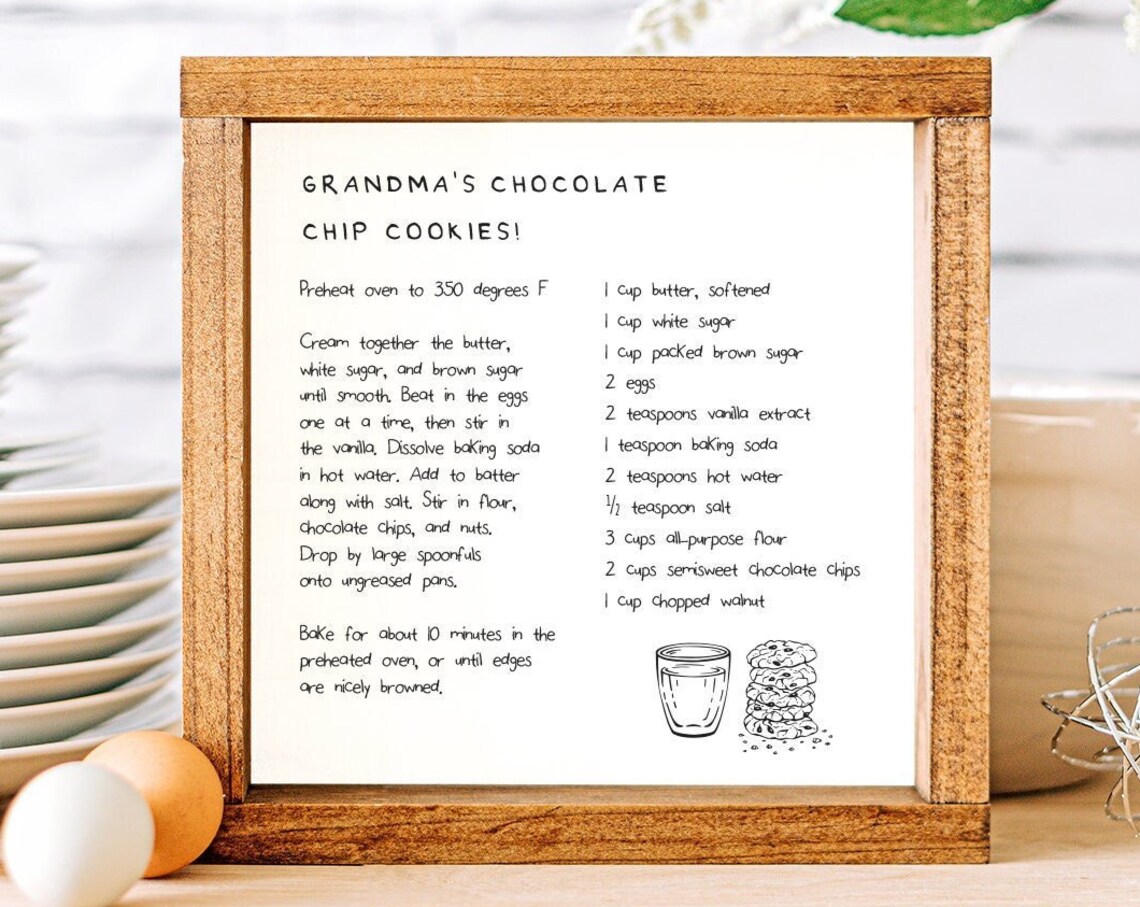 GRANDMA'S CHOCOLATE
CHIP COOKIES!
Preheat oven to 350 degrees F
Cream together the butter,
white sugar, and brown sugar
until smooth. Beat in the eggs
one at a time, then stir in
the vanilla. Dissolve baking soda
in hot water. Add to batter
along with salt. Stir in flour,
chocolate chips, and nuts.
Drop by large spoonfuls
onto ungreased pans.
Bake for about 10 minutes in the
preheated oven, or until edges
are nicely browned.
1 cup butter, softened
1 cup white sugar
1 cup packed brown sugar
2 eggs
2 teaspoons vanilla extract
1 teaspoon baking soda
2 teaspoons hot water
1/2 teaspoon salt
3 cups all-purpose flour
2 cups semisweet chocolate chips
1 cup chopped walnut